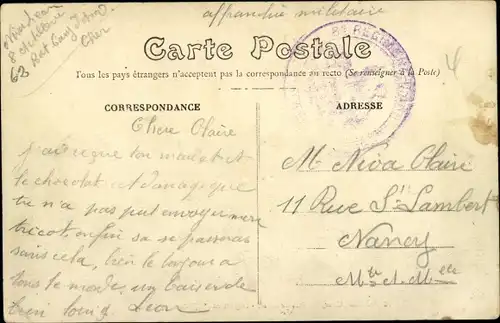 affranchie militaire
8e REGIMENT
62
Cher
4
Carte Postale
Tous les pays étrangers n'acceptent pas la correspondance au recto (Se renseigner à la Poste)
CORRESPONDANCE
Chere Claire
j'ai reçue ton mandat et
le chocolat et domage que
tu n'a pas put envoyer mon
tricot, enfin sa se passeras
sans cela, bien le bonjour a
tous le monde, un baiser de
bien loing Leon
ADRESSE
Mle Neva Claire
11 Rue St Lambert
Nancy
Mthe et Mlle